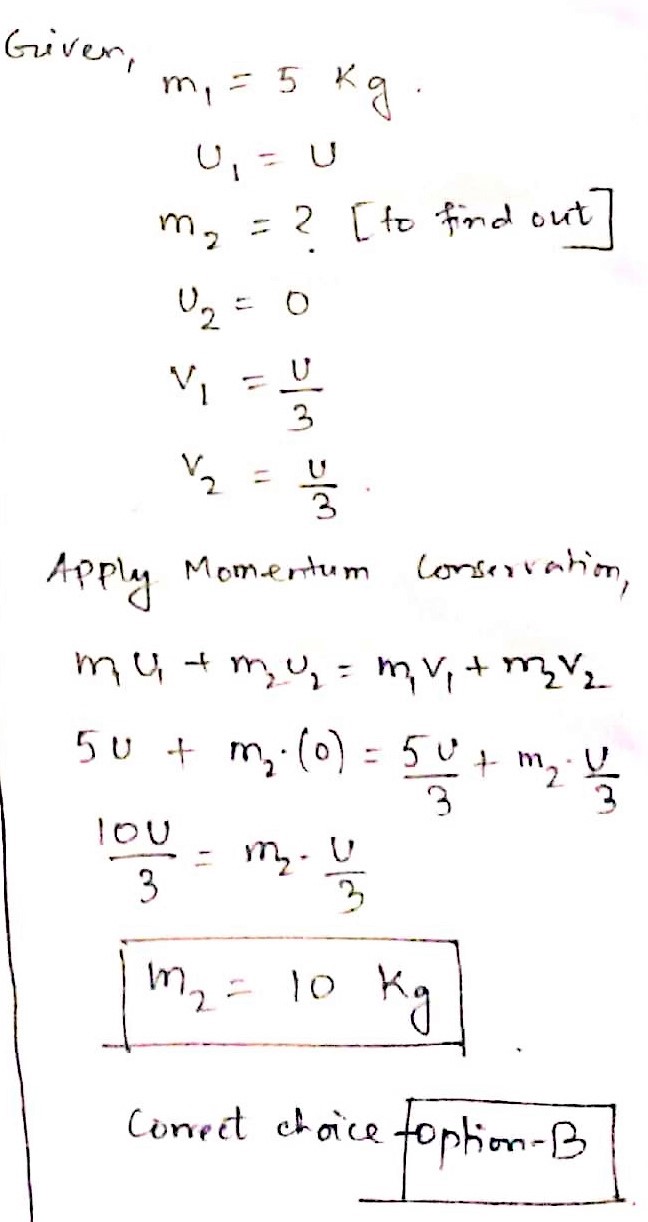 Given,
m₁ = 5 Kg.
U₁ = U
m₂ = ? [to find out]
U₂ = 0
V₁ = U/3
V₂ = U/3.
Apply Momentum Conservation,
m₁U₁ + m₂U₂ = m₁V₁ + m₂V₂
5U + m₂·(0) = 5U/3 + m₂·U/3
10U/3 = m₂·U/3
m₂ = 10 Kg.
Correct choice option-B